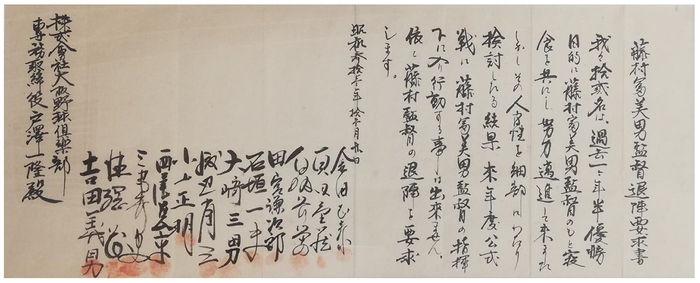 藤村富美男監督退陣要求書
我々拾弐名は、過去一ヶ年半優勝
目的に藤村富美男監督のもと寝
食を共にし努力邁進して来まし
しかしその人間性を細部にわたり
検討したる結果、来年度公式
戦に藤村富美男監督の指揮
下に入り行動する事は出来ません。
依て藤村監督の退陣を要求
します。
昭和参拾一年拾一月
金田正泰
真田重蔵
白坂長栄
田宮謙次郎
石垣一夫
大崎三男
小山正明
西尾
三宅秀史
吉田義男
株式会社大阪野球倶楽部
専務取締役戸澤一隆殿